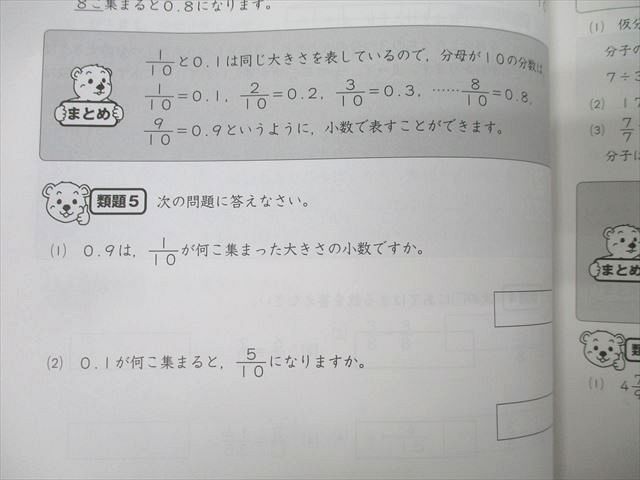 8こ集まると0.8になります。
1/10と0.1は同じ大きさを表しているので，分母が10の分数は
1/10＝0.1，2/10＝0.2，3/10＝0.3，……8/10＝0.8，
9/10＝0.9というように，小数で表すことができます。
まとめ
類題5 次の問題に答えなさい。
(1) 0.9は，1/10が何こ集まった大きさの小数ですか。
(2) 0.1が何こ集まると，5/10になりますか。
(1) 仮分
分子の
7÷
(2) 17
(3) 7/7
分子に
まとめ
類
(1) 4 7/9